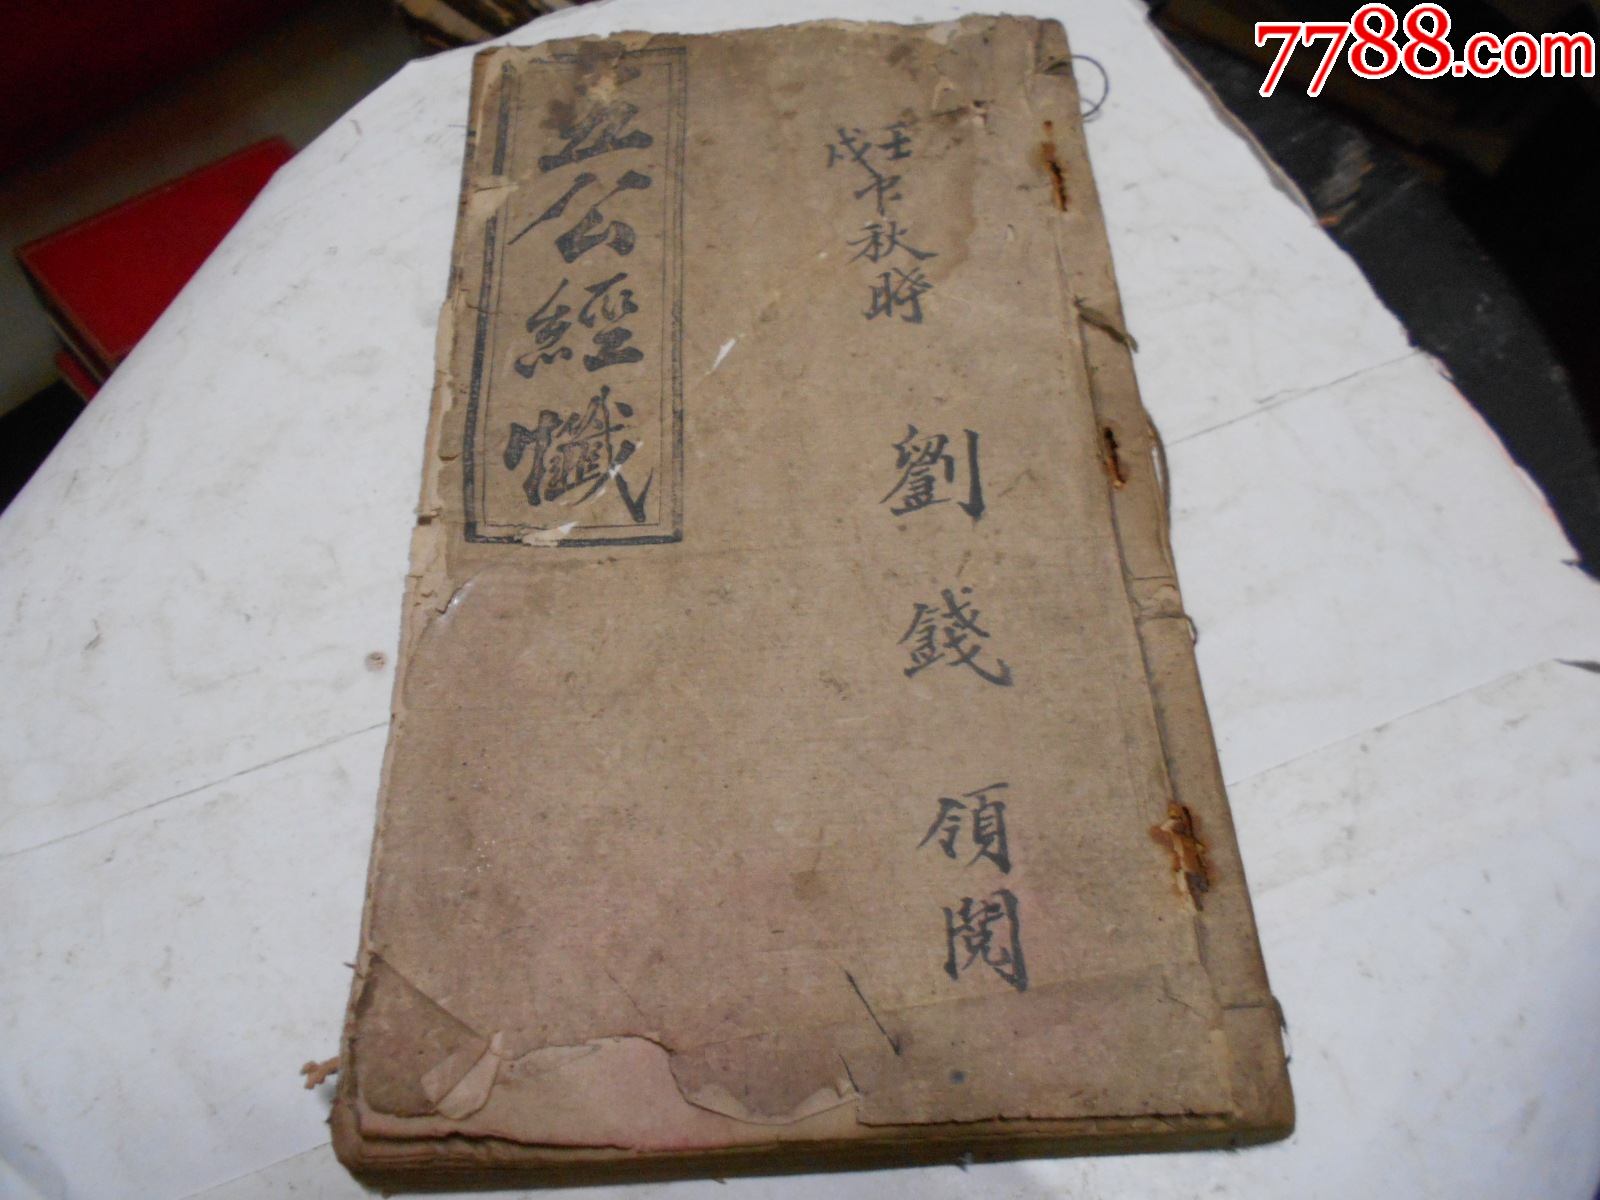 7788.com
壬戌中秋時 劉錢領閱
五公經懺